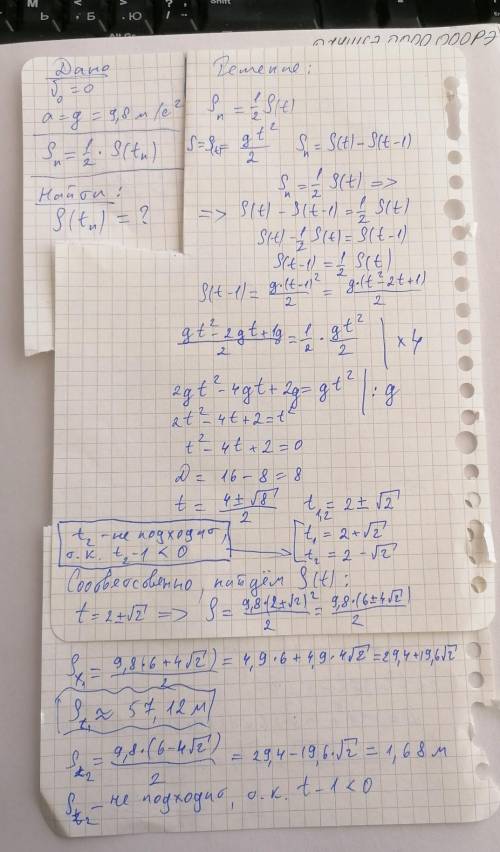 Дано
υ₀ = 0
a = g = 9,8 м/с²
Sₙ = 1/2 · S(tₙ)
Найти:
S(tₙ) = ?
Решение:
Sₙ = 1/2 S(t)
S = S(t) = gt²/2    Sₙ = S(t) - S(t-1)
Sₙ = 1/2 S(t) =>
=> S(t) - S(t-1) = 1/2 S(t)
S(t) - 1/2 S(t) = S(t-1)
S(t-1) = 1/2 S(t)
S(t-1) = g·(t-1)²/2 = g·(t²-2t+1)/2
(gt² - 2gt + 1g)/2 = 1/2 · gt²/2 | × 4
2gt² - 4gt + 2g = gt² | : g
2t² - 4t + 2 = t²
t² - 4t + 2 = 0
D = 16 - 8 = 8
t = (4 ± √8)/2    t₁,₂ = 2 ± √2
t₂ - не подходит,    t₁ = 2 + √2
т.к. t₂ - 1 < 0    t₂ = 2 - √2
Соответсвенно, найдём S(t):
t = 2 ± √2 => S = 9,8·(2 ± √2)²/2 = 9,8·(6 ± 4√2)/2
St₁ = 9,8·(6 + 4√2)/2 = 4,9·6 + 4,9·4√2 = 29,4 + 19,6√2
St₁ ≈ 57,12 м
St₂ = 9,8·(6 - 4√2)/2 = 29,4 - 19,6·√2 = 1,68 м
St₂ - не подходит, т.к. t - 1 < 0